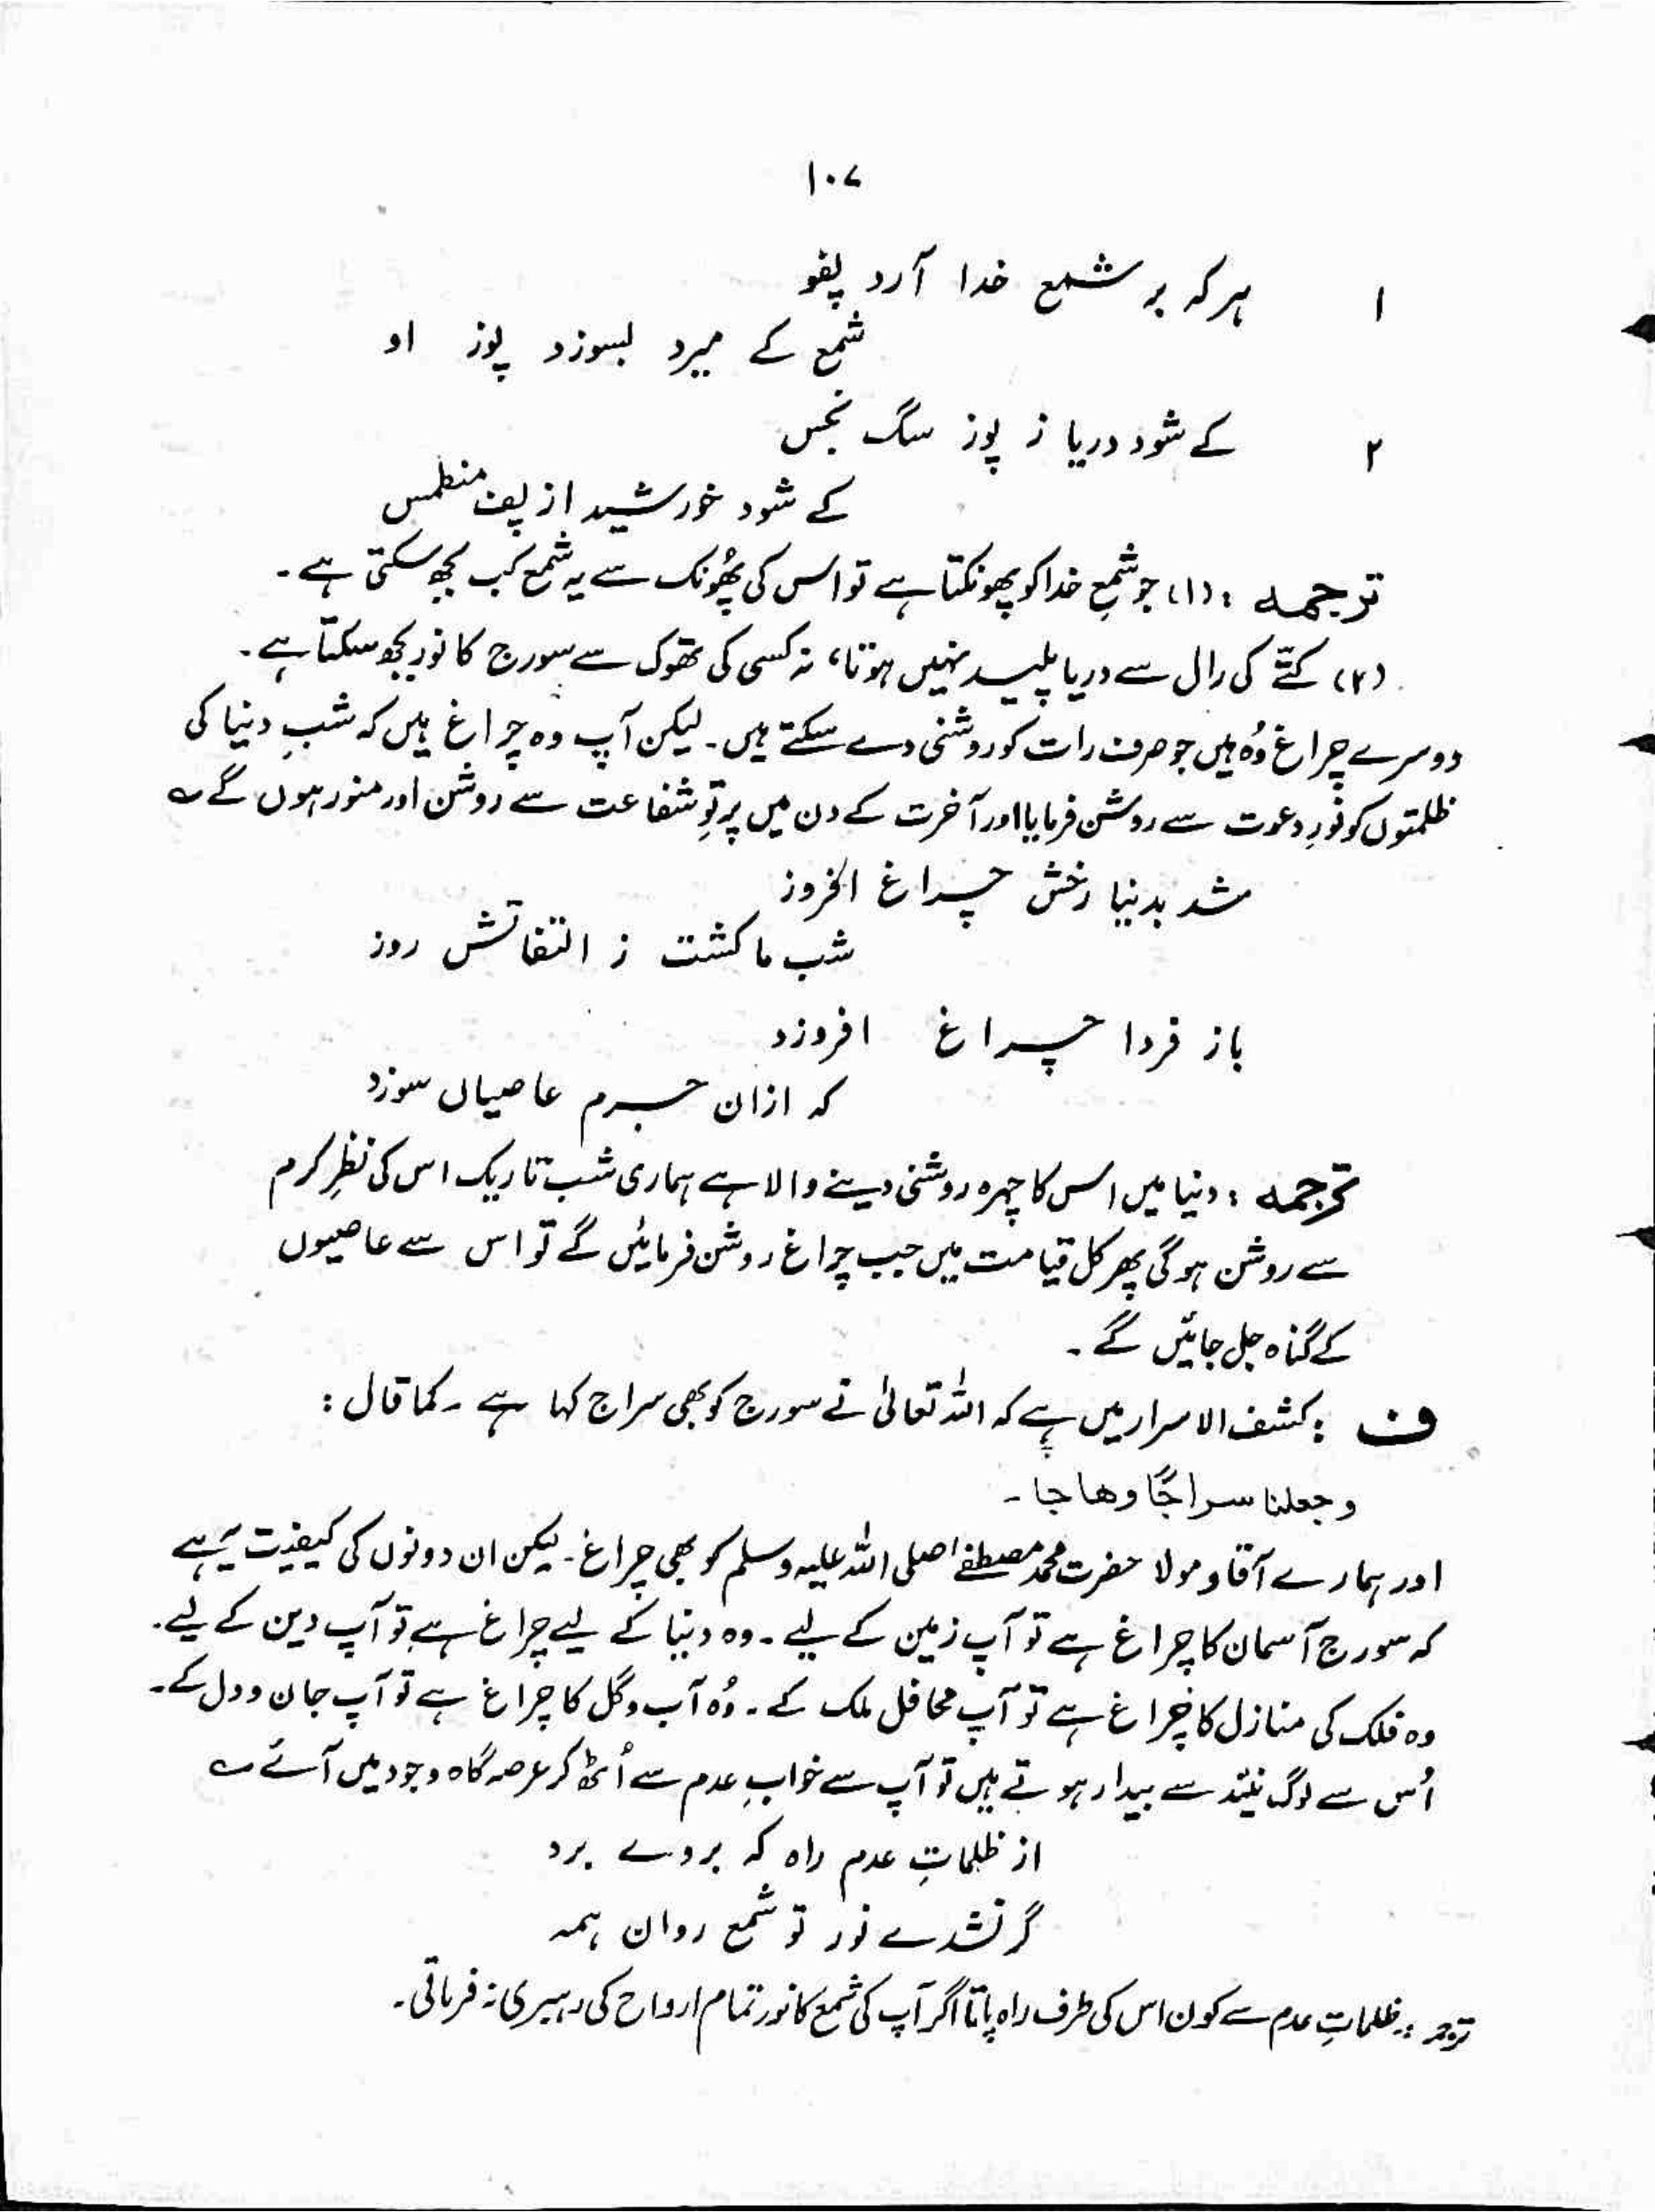 ۱۰۷
۱ ہر کہ بر شمع خدا آرد پفو
شمع کے میرد بسوزد پوز او
۲ کے شود دریا ز پوز سگ نجس
کے شود خورشید از پف منطمس
ترجمہ : (۱) جو شمعِ خدا کو پھونکتا ہے تو اس کی پھُونک سے یہ شمع کب بجھ سکتی ہے۔
(۲) کتّے کی رال سے دریا پلید نہیں ہوتا، نہ کسی کی تھوک سے سورج کا نور بجھ سکتا ہے۔
دوسرے چراغ وُہ ہیں جو صرف رات کو روشنی دے سکتے ہیں۔ لیکن آپ وہ چراغ ہیں کہ شبِ دنیا کی
ظلمتوں کو نُورِ دعوت سے روشن فرمایا اور آخرت کے دن میں پرتوِ شفاعت سے روشن اور منور ہوں گے ؎
شد بدنیا رخش چراغ افروز
شب ما گشت ز التفاتش روز
باز فردا چراغ افروزد
کہ ازان جرم عاصیاں سوزد
ترجمہ : دنیا میں اس کا چہرہ روشنی دینے والا ہے ہماری شب تاریک اس کی نظرِ کرم
سے روشن ہوگی پھر کل قیامت میں جب چراغ روشن فرمائیں گے تو اس سے عاصیوں
کے گناہ جل جائیں گے۔
ف : کشف الاسرار میں ہے کہ اللہ تعالیٰ نے سورج کو بھی سراج کہا ہے ۔ کما قال :
وجعلنا سراجًا وھاجا۔
اور ہمارے آقا و مولا حضرت محمد مصطفےٰ صلی اللہ علیہ وسلم کو بھی چراغ۔ لیکن ان دونوں کی کیفیت یہ ہے
کہ سورج آسمان کا چراغ ہے تو آپ زمین کے لیے ۔ وہ دنیا کے لیے چراغ ہے تو آپ دین کے لیے۔
وہ فلک کی منازل کا چراغ ہے تو آپ محافل ملک کے۔ وُہ آب و گل کا چراغ ہے تو آپ جان و دل کے۔
اُس سے لوگ نیند سے بیدار ہوتے ہیں تو آپ سے خوابِ عدم سے اُٹھ کر عرصہ گاہ وجود میں آئے ؎
از ظلماتِ عدم راہ کہ بروے برد
گر نشدے نور تو شمع روان ہمہ
ترجمہ :۔ ظلماتِ عدم سے کون اس کی طرف راہ پاتا اگر آپ کی شمع کا نور تمام ارواح کی رہبری نہ فرماتی۔